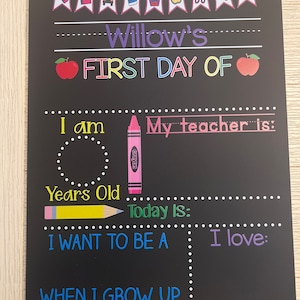 Willow's
FIRST DAY OF
I am
My teacher is:
Years Old
Today is:
I WANT TO BE A
I love:
WHEN I GROW UP